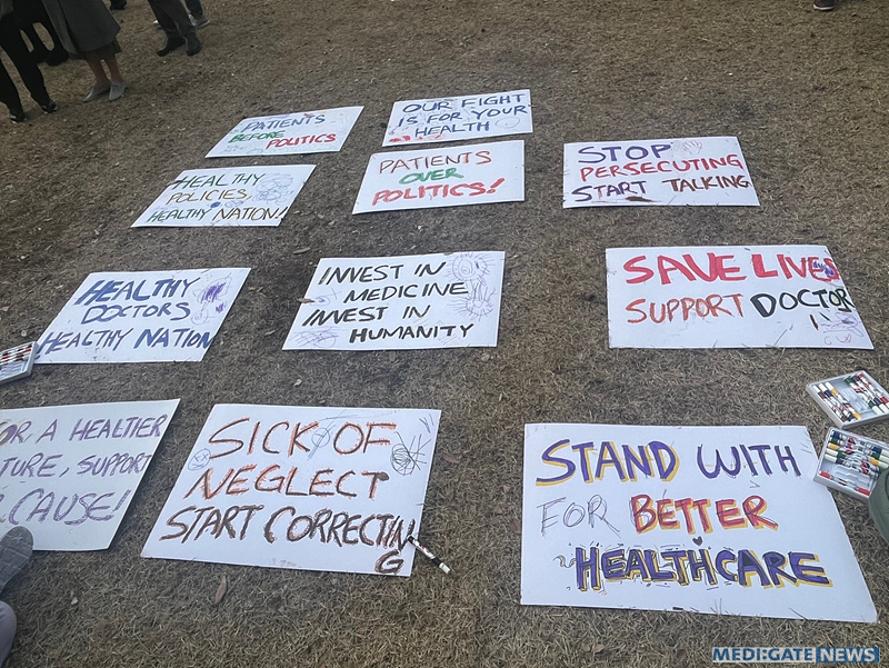 PATIENTS
BEFORE
POLITICS
OUR FIGHT
IS FOR YOUR
HEALTH
HEALTHY
POLICIES,
HEALTHY NATION!
PATIENTS
OVER
POLITICS!
STOP
PERSECUTING
START TALKING
HEALTHY
DOCTORS
HEALTHY NATION
INVEST IN
MEDICINE
INVEST IN
HUMANITY
SAVE LIVES
SUPPORT DOCTOR
!
OR A HEALTHIER
TURE, SUPPORT
CAUSE!
SICK OF
NEGLECT
START CORRECTIN
G
STAND WITH
FOR BETTER
HEALTHCARE
MEDI:GATE NEWS